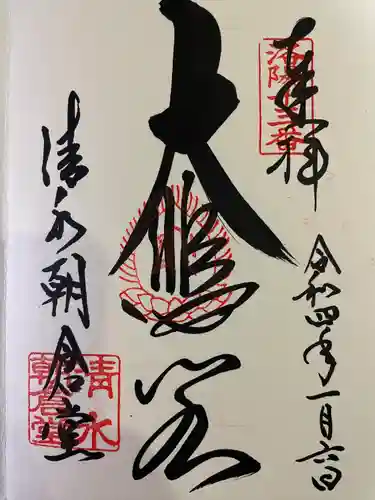 奉拝
洛陽十三番
令和四年一月六日
大悲閣
清水朝倉堂
清水
朝倉堂